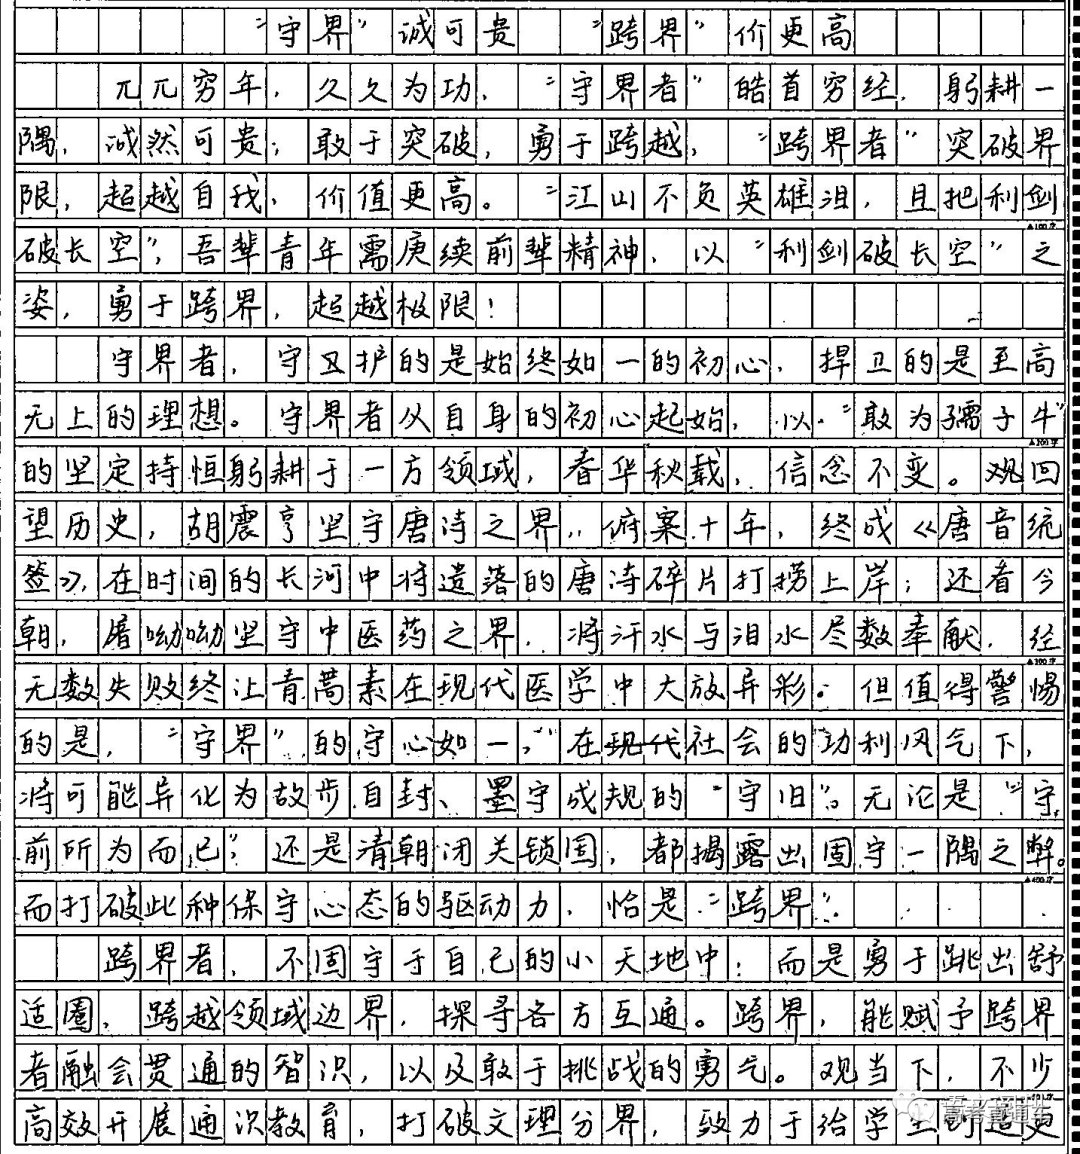 “守界”诚可贵 “跨界”价更高
兀兀穷年，久久为功，“守界者”皓首穷经，躬耕一
隅，诚然可贵；敢于突破，勇于跨越，“跨界者”突破界
限，超越自我，价值更高。“江山不负英雄泪，且把利剑
▲100字
破长空”，吾辈青年需赓续前辈精神，以“利剑破长空”之
姿，勇于跨界，超越极限！
守界者，守及护的是始终如一的初心，捍卫的是至高
无上的理想。守界者从自身的初心起始，以“敢为孺子牛”
▲200字
的坚定持恒躬耕于一方领域，春华秋载，信念不变。观回
望历史，胡震亨坚守唐诗之界，俯案十年，终成《唐音统
签》，在时间的长河中将遗落的唐诗碎片打捞上岸；还看今
朝，屠呦呦坚守中医药之界，将汗水与泪水尽数奉献，经
▲300字
无数失败终让青蒿素在现代医学中大放异彩。但值得警惕
的是，“守界”的守心如一，在现代社会的功利风气下，
将可能异化为故步自封、墨守成规的“守旧”。无论是“守
前所为而已”，还是清朝闭关锁国，都揭露出固守一隅之弊。
▲400字
而打破此种保守心态的驱动力，恰是“跨界”。
跨界者，不固守于自己的小天地中；而是勇于跳出舒
适圈，跨越领域边界，探寻各方互通。跨界，能赋予跨界
者融会贯通的智识，以及敢于挑战的勇气。观当下，不少
高效开展通识教育，打破文理分界，致力于给学生创造更